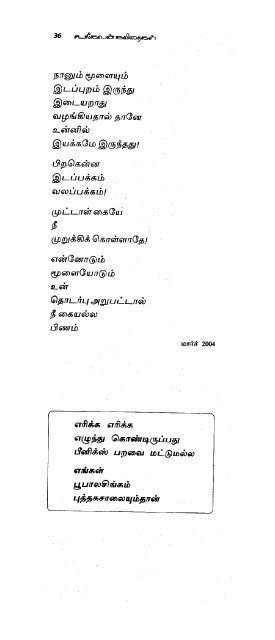 36
கவிதைகள்
நானும் மூளையும்
இடப்புறம் இருந்து
இடையறாது
வழங்கியதால் தானே
உன்னில்
இயக்கமே இருந்தது!
பிறகென்ன
இடப்பக்கம்
வலப்பக்கம்!
முட்டாள் கையே
நீ
முறுக்கிக் கொள்ளாதே!
என்னோடும்
மூளையோடும்
உன்
தொடர்பு அறுபட்டால்
நீ கையல்ல
பிணம்
மார்ச் 2004
எரிக்க எரிக்க
எழுந்து கொண்டிருப்பது
பீனிக்ஸ் பறவை மட்டுமல்ல
எங்கள்
பூபாலசிங்கம்
புத்தகசாலையும்தான்